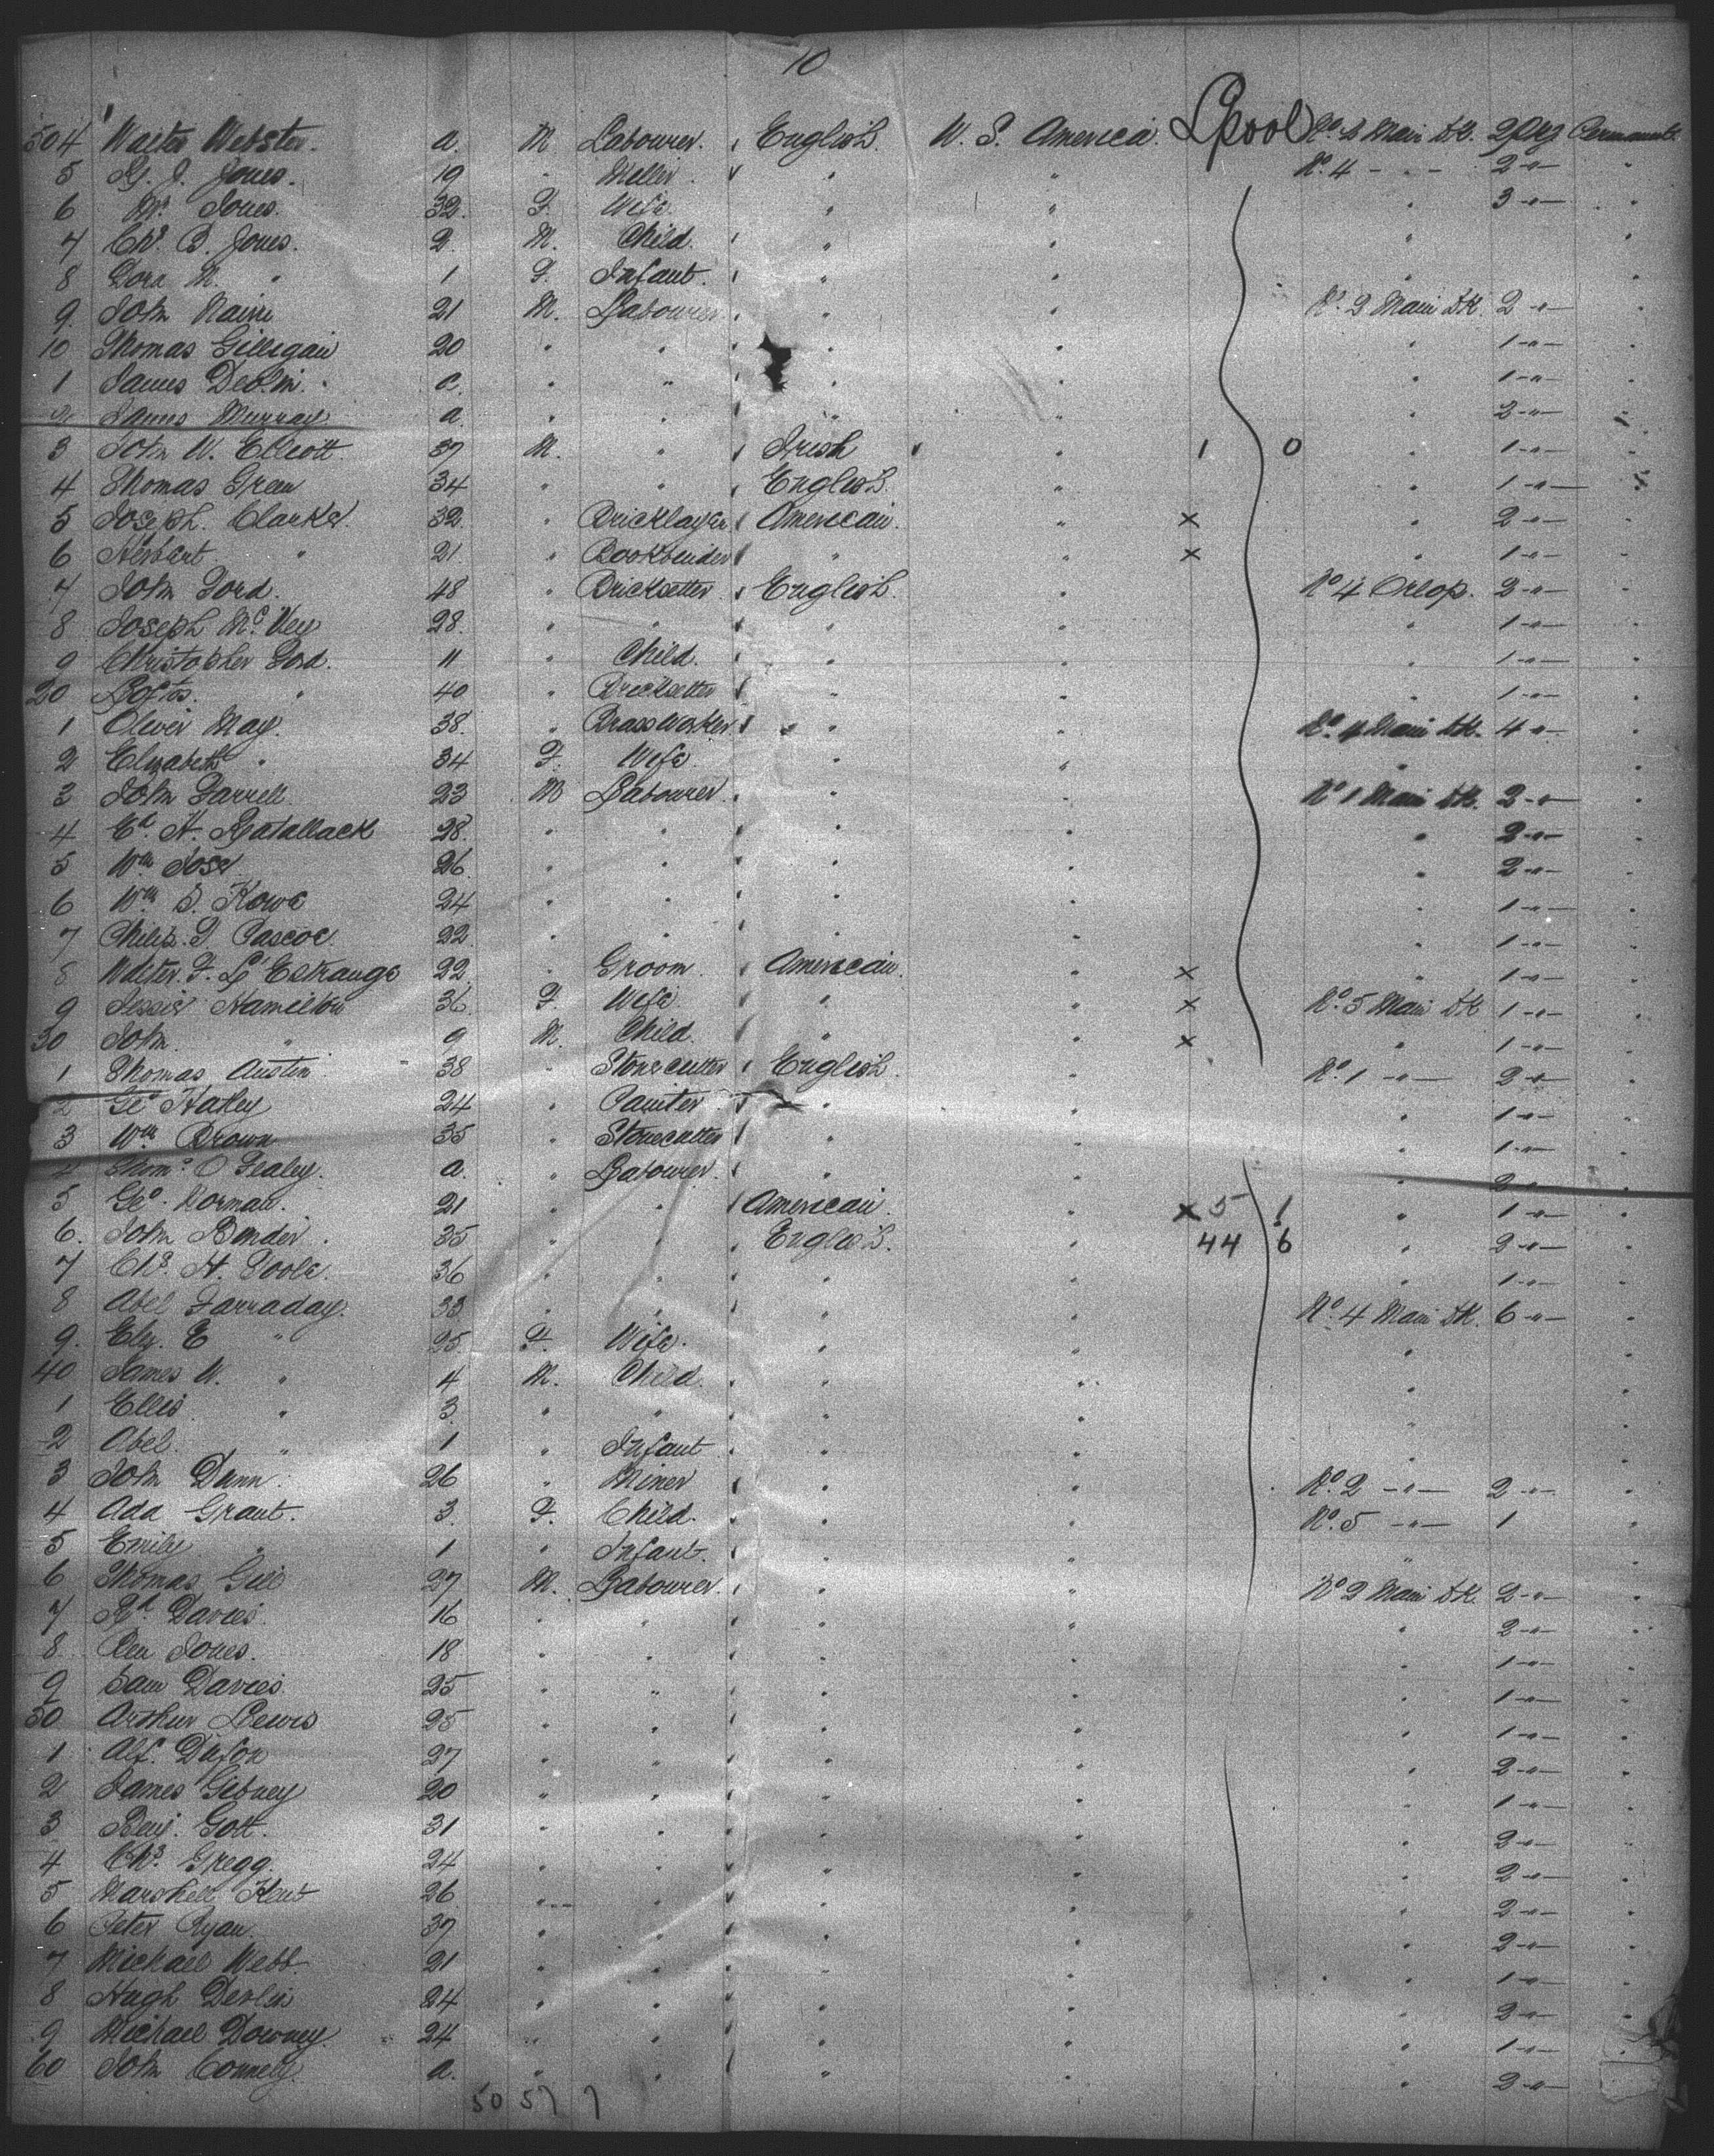 10
504 Walter Webster. a. M Labourer. English. W. S. America. Lpool No. 2 Main Dk. 2 Pkg Permanent.
5 19 " " " No. 4 - " - 2 -"-
6 Mrs Jones. 32. F. Wife. " " " 3 -"- "
7 Chs. B. Jones. 2. M. Child. " " " "
8 Dora M. " 1 F. Infant. " " " "
9. John Nairn 21 M. Labourer. " " No. 2 Main Dk. 2 -"- "
10 Thomas Gilligan 20 " " " " " 1 -"- "
1 James Devlin. a. " " " " " 1 -"- "
2 James Murray a. " " " " " 2 -"- "
3 John W. Elliott 37 M. " Irish " 1 0 " 1 -"- "
4 Thomas Green 34 " " English. " " 1 -"- "
5 Joseph. Clarke. 32. " Bricklayer American. " x " 2 -"- "
6 Herbert " 21. " Bookbinder " " x " 1 -"- "
7 John Ford. 48 " Bricksetter English. " No 4 Orlop. 2 -"- "
8 Joseph McVey 28. " " " " " 1 -"- "
9 Christopher Ford. 11 " Child. " " " 1 -"- "
20 " 40 " Bricksetter " " " 1 -"- "
1 Oliver May. 38. " Brassworker. " " No. 4 Main Dk. 4 -"- "
2 Elizabeth " 34 F. Wife " " " "
3 John Farrell. 23 M Labourer. " " No 1 Main Dk. 2 -"- "
4 Ed. H. Ratallack 28. " " " " " 2 -"- "
5 Wm Jose. 26. " " " " " 2 -"- "
6 Wm. S. Rowe 24 " " " " " 1 -"- "
7 Philip. J. Pascoe. 22. " " " " " 1 -"- "
8 Walter. F. L'Estrange 22 " Groom. American. " x " 1 -"- "
9 Jessie Hamilton 36 F. Wife " " x No. 5 Main Dk 1 -"- "
30 John. " 9 M. Child. " " x " 1 -"- "
1 Thomas Austin 38 " Stonecutter English. " No. 1 -"- 2 -"- "
2 Geo Haley 24 " Painter " " " 1 -"- "
3 Wm. Brown 35 " Stonecutter " " " 1 -"- "
4 Thoms. O'Fealey. a. " Labourer. " " " 2 -"- "
5 Geo. Norman. 21 " " American. " x 5 1 " 1 -"- "
6. John Bender. 35 " " English. " 44 6 " 2 -"- "
7 Chs. H. Poole. 36 " " " " " 1 -"- "
8 Abel Farraday. 33 " " " " No. 4 Main Dk. 6 -"- "
9. Elz. E " 25. F. Wife. " " " "
40 James W. " 4 M. Child. " " " "
1 Ellis " 3. " " " " " "
2 Abel. " 1 " Infant " " " "
3 John Dunn. 26 " Miner " " No. 2 -"- 2 -"- "
4 Ada Grant. 3. F. Child. " " No. 5 -"- 1 "
5 Emily " 1 " Infant. " " " "
6 Thomas Gill 27 M. Labourer. " " No 2 Main Dk. 2 -"- "
7 Rd. Davies. 16 " " " " " 2 -"- "
8 Ben Jones. 18 " " " " " 1 -"- "
9 Sam Davies. 25 " " " " " 1 -"- "
50 Arthur Lewis 25 " " " " " 1 -"- "
1 Alf. 27 " " " " " 2 -"- "
2 James Gibney 20 " " " " " 1 -"- "
3 Benj. Gott. 31 " " " " " 2 -"- "
4 Chs. Gregg. 24 " " " " " 2 -"- "
5 Marshall Kent 26 " " " " " 2 -"- "
6 Peter Ryan. 37 " " " " " 2 -"- "
7 Michael Webb. 21 " " " " " 1 -"- "
8 Hugh Devlin 24 " " " " " 2 -"- "
9 Michael Downey. 24 " " " " " 1 -"-
60 John Connelly. a. " " " " " 2 -"-
50 57 7